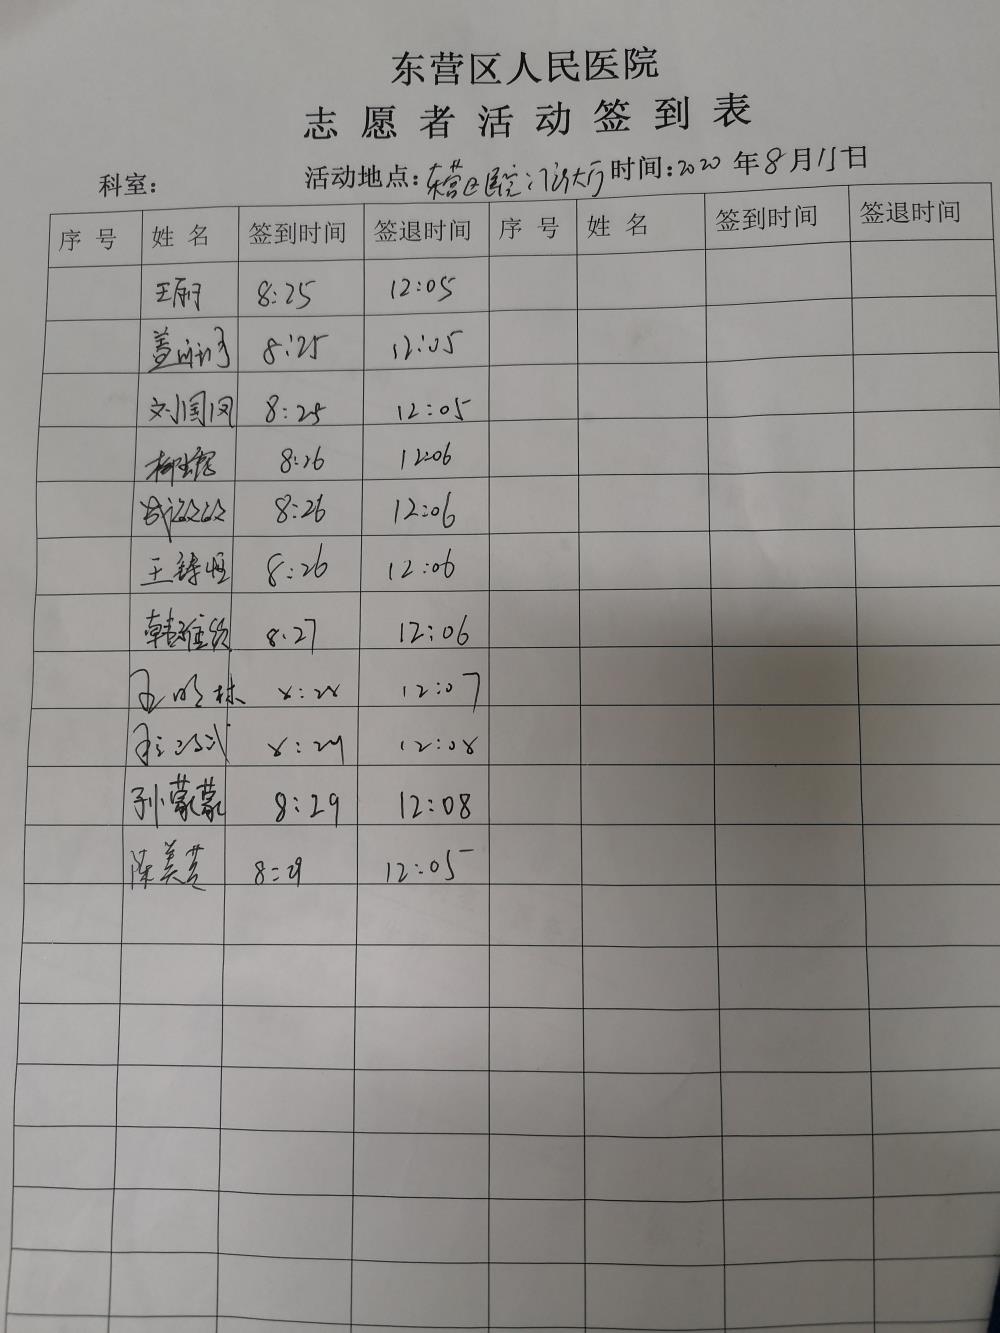 东营区人民医院
志愿者活动签到表
科室： 活动地点：东营区医院门诊大厅 时间：2020年8月15日
序号 姓名 签到时间 签退时间 序号 姓名 签到时间 签退时间
王丽 8:25 12:05
盖 8:25 12:05
刘国凤 8:25 12:05
柳 8:26 12:06
8:26 12:06
王铸恒 8:26 12:06
韩雅 8:27 12:06
王明林 8:28 12:07
8:29 12:08
孙蒙蒙 8:29 12:08
陈美芸 8:29 12:05